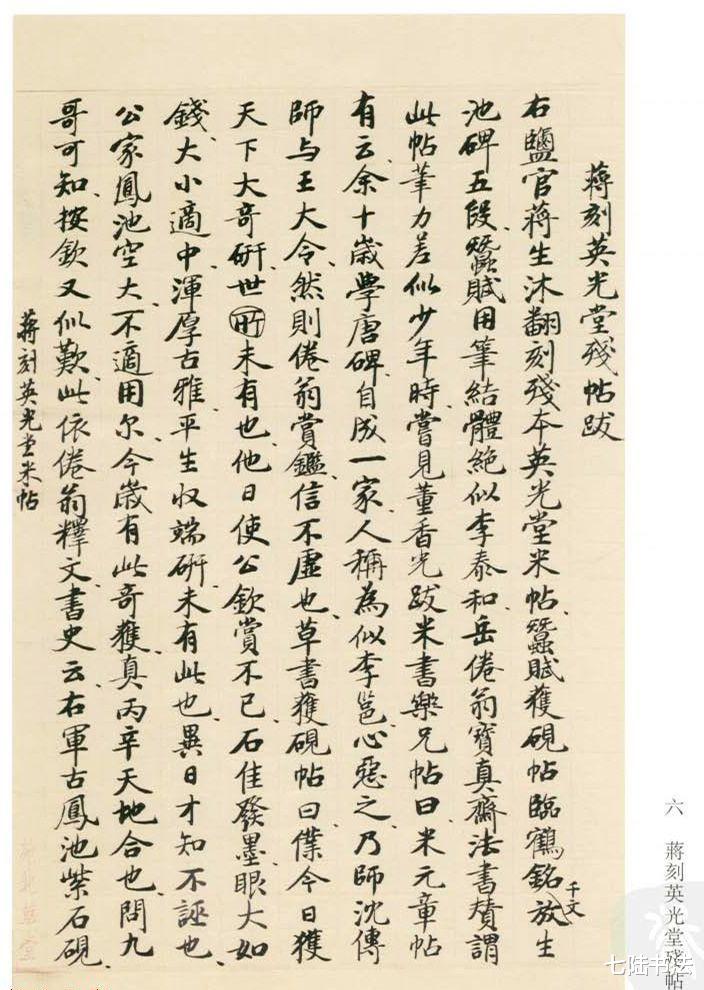 蔣刻英光堂殘帖跋
右鹽官蔣生沐翻刻殘本英光堂米帖、蠶賦獲硯帖臨鶴銘放生
千文
池碑五段、蠶賦用筆結體絕似李泰和、岳倦翁寶真齋法書贊謂
此帖筆力差似少年時、嘗見董香光跋米書樂兄帖曰、米元章帖
有云、余十歲學唐碑、自成一家、人稱為似李邕、心惡之、乃師沈傳
師与王大令、然則倦翁賞鑑信不虛也、草書獲硯帖曰、僕今日獲
天下大奇硏、世所未有也、他日使公欽賞不已、石佳發墨、眼大如
錢、大小適中、渾厚古雅、平生收端硏、未有此也、異日才知不誣也、
公家鳳池空大、不適用尔、今歲有此奇獲、真丙辛天地合也、問九
哥可知、按欽又似歎、此依倦翁釋文、書史云、右軍古鳳池紫石硯、
蔣刻英光堂米帖
六 蔣刻英光堂殘帖
七陆书法